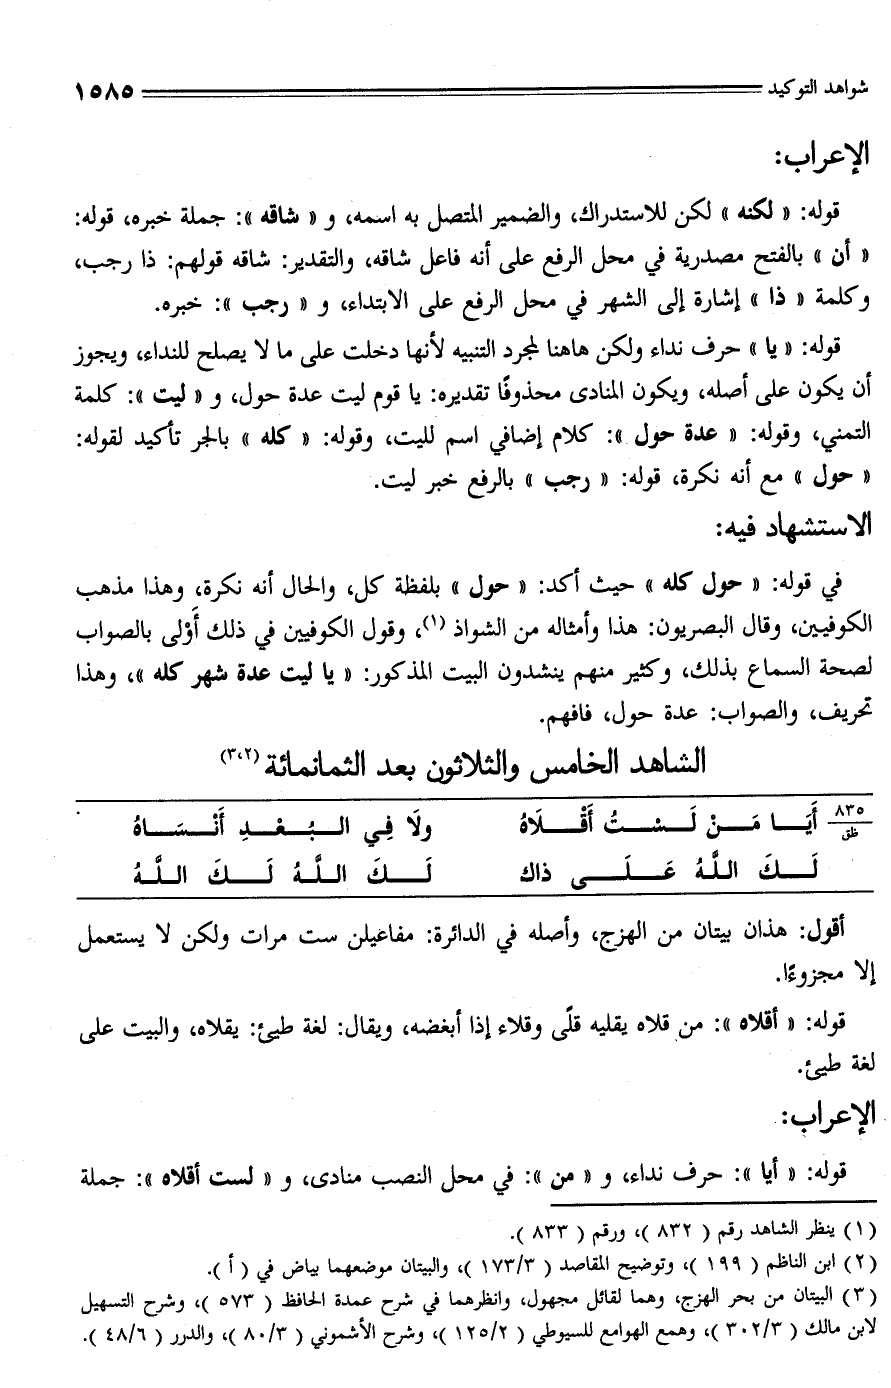 شواهد التوكيد ١٥٨٥
الإعراب:
قوله: « لكنه » لكن للاستدراك، والضمير المتصل به اسمه، و « شاقه »: جملة خبره، قوله:
« أن » بالفتح مصدرية في محل الرفع على أنه فاعل شاقه، والتقدير: شاقه قولهم: ذا رجب،
وكلمة « ذا » إشارة إلى الشهر في محل الرفع على الابتداء، و « رجب »: خبره.
قوله: « يا » حرف نداء ولكن هاهنا لمجرد التنبيه لأنها دخلت على ما لا يصلح للنداء، ويجوز
أن يكون على أصله، ويكون المنادى محذوفًا تقديره: يا قوم ليت عدة حول، و « ليت »: كلمة
التمني، وقوله: « عدة حول »: كلام إضافي اسم لليت، وقوله: « كله » بالجر تأكيد لقوله:
« حول » مع أنه نكرة، قوله: « رجب » بالرفع خبر ليت.
الاستشهاد فيه:
في قوله: « حول كله » حيث أكد: « حول » بلفظة كل، والحال أنه نكرة، وهذا مذهب
الكوفيين، وقال البصريون: هذا وأمثاله من الشواذ (١)، وقول الكوفيين في ذلك أَوْلى بالصواب
لصحة السماع بذلك، وكثير منهم ينشدون البيت المذكور: « يا ليت عدة شهر كله »، وهذا
تحريف، والصواب: عدة حول، فافهم.
الشاهد الخامس والثلاثون بعد الثمانمائة (٣،٢)
٨٣٥ ظق أَيَا مَنْ لَسْتُ أَقْلَاهُ ولَا فِي البُعْدِ أَنْسَاهُ
لَكَ اللَّهُ عَلَى ذاك لَكَ اللَّهُ لَكَ اللَّهُ
أقول: هذان بيتان من الهزج، وأصله في الدائرة: مفاعيلن ست مرات ولكن لا يستعمل
إلا مجزوءًا.
قوله: « أقلاه »: من قلاه يقليه قلًى وقلاء إذا أبغضه، ويقال: لغة طيئ: يقلاه، والبيت على
لغة طيئ.
الإعراب:
قوله: « أيا »: حرف نداء، و « من »: في محل النصب منادى، و « لست أقلاه »: جملة
(١) ينظر الشاهد رقم ( ٨٣٢ )، ورقم ( ٨٣٣ ).
(٢) ابن الناظم ( ١٩٩ )، وتوضيح المقاصد ( ١٧٣/٣ )، والبيتان موضعهما بياض في ( أ ).
(٣) البيتان من بحر الهزج، وهما لقائل مجهول، وانظرهما في شرح عمدة الحافظ ( ٥٧٣ )، وشرح التسهيل
لابن مالك ( ٣٠٢/٣ )، وهمع الهوامع للسيوطي ( ١٢٥/٢ )، وشرح الأشموني ( ٨٠/٣ )، والدرر ( ٤٨/٦ ).